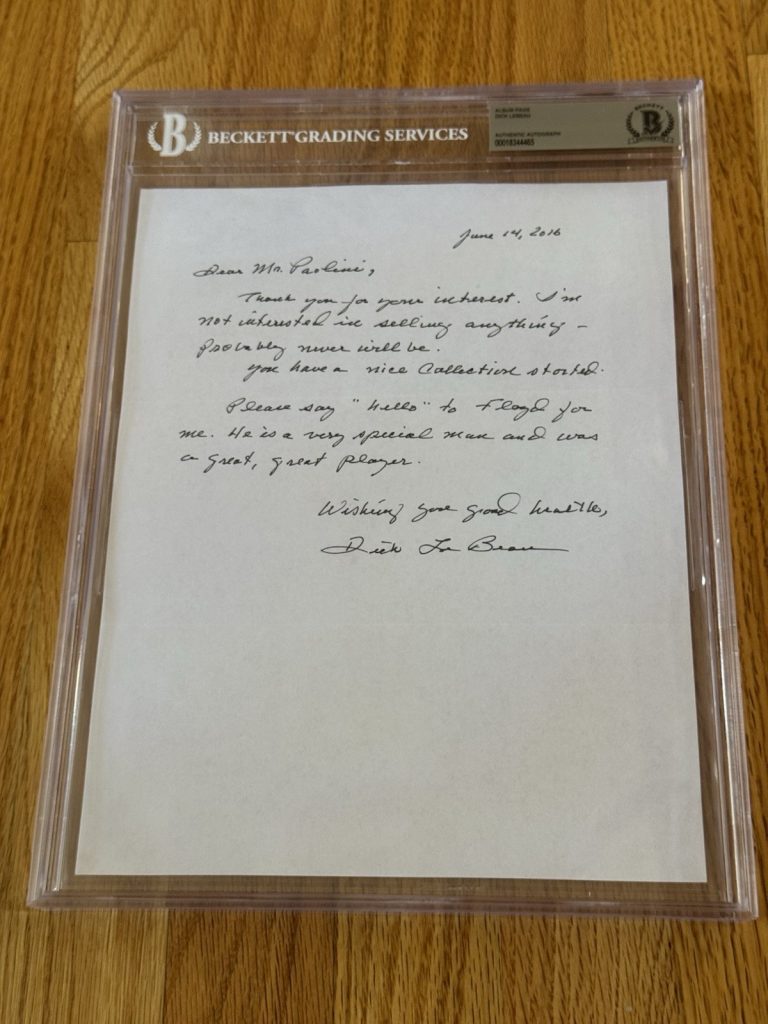 BECKETT GRADING SERVICES
ALBUM PAGE
DICK LEBEAU
AUTHENTIC AUTOGRAPH
00016344465
BECKETT
B
AUTHENTICS
June 14, 2016
Dear Mr. Paolini,
Thank you for your interest. I'm
not interested in selling anything –
probably never will be.
You have a nice Collection started.
Please say "hello" to Floyd for
me. He is a very special man and was
a great, great player.
Wishing you good health,
Dick LeBeau